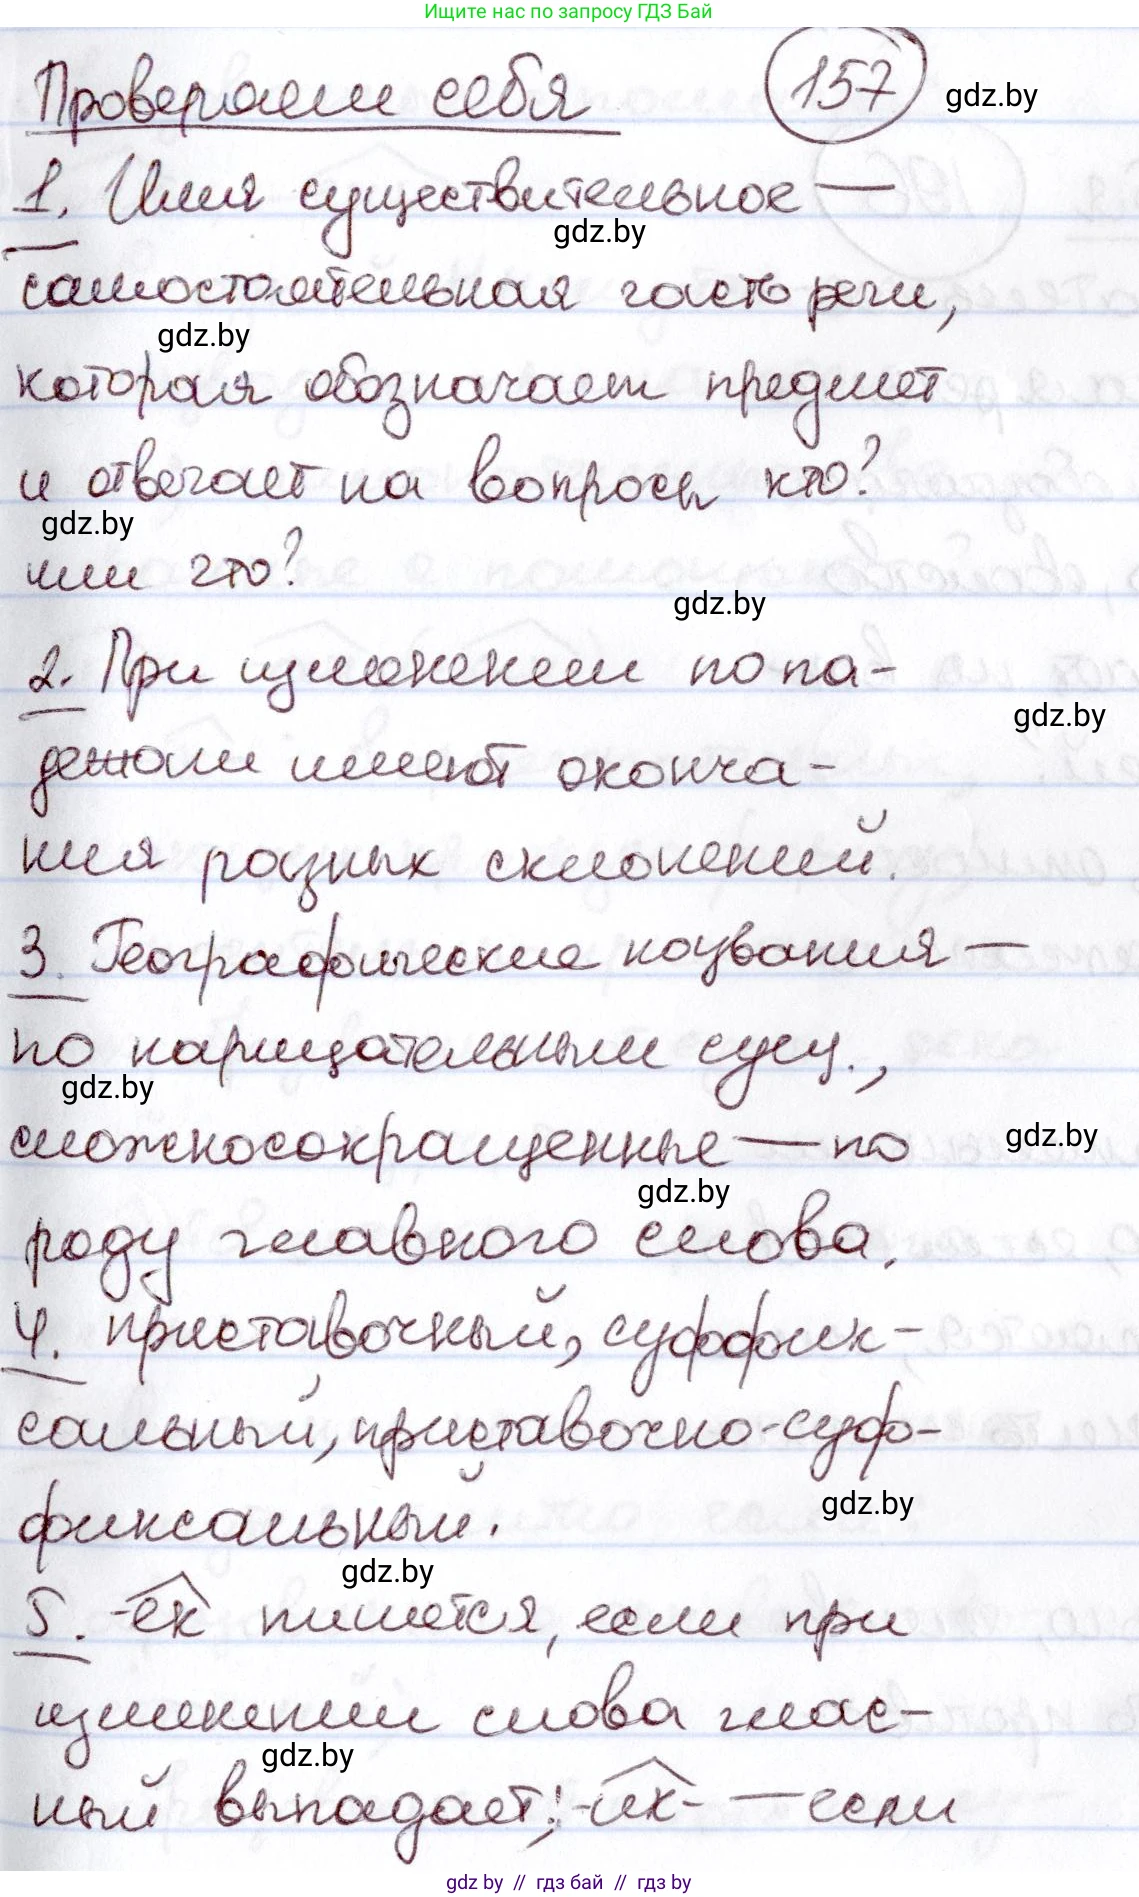 Ищите нас по запросу ГДЗ Бай
Проверяем себя 157 gdz.by
1. Имя существительное —
gdz.by
самостоятельная часть речи,
gdz.by
которая обозначает предмет
и отвечает на вопросы кто?
gdz.by
или что?
gdz.by
2. При изменении по па-
gdz.by
дежам имеют оконча-
ния разных склонений.
3. Географические названия —
по нарицательным сущ.,
gdz.by
сложносокращенные — по
gdz.by
gdz.by
роду главного слова.
4. приставочный, суффик-
сальный, приставочно-суф-
gdz.by
фиксальный.
gdz.by
5. -ек пишется, если при
изменении слова глас-
gdz.by
ный выпадает; -ик- — если
gdz.by // гдз бай // гдз by